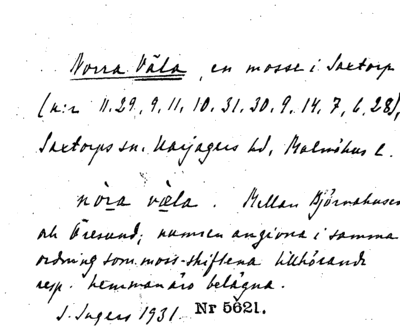 Norra Väla, en mosse i Saxtorp
(n:r 11.29, 9, 11, 10, 31, 30, 9, 14, 7, 6, 28),
Saxtorps sn. Harjagers hd, Malmöhus l.
nòra væla. Mellan Björnahusen
och Öresund; numren angivna i samma
ordning som moss-skiftena tillhörande
resp. hemman äro belägna.
J. Ingers 1931. Nr 5621.